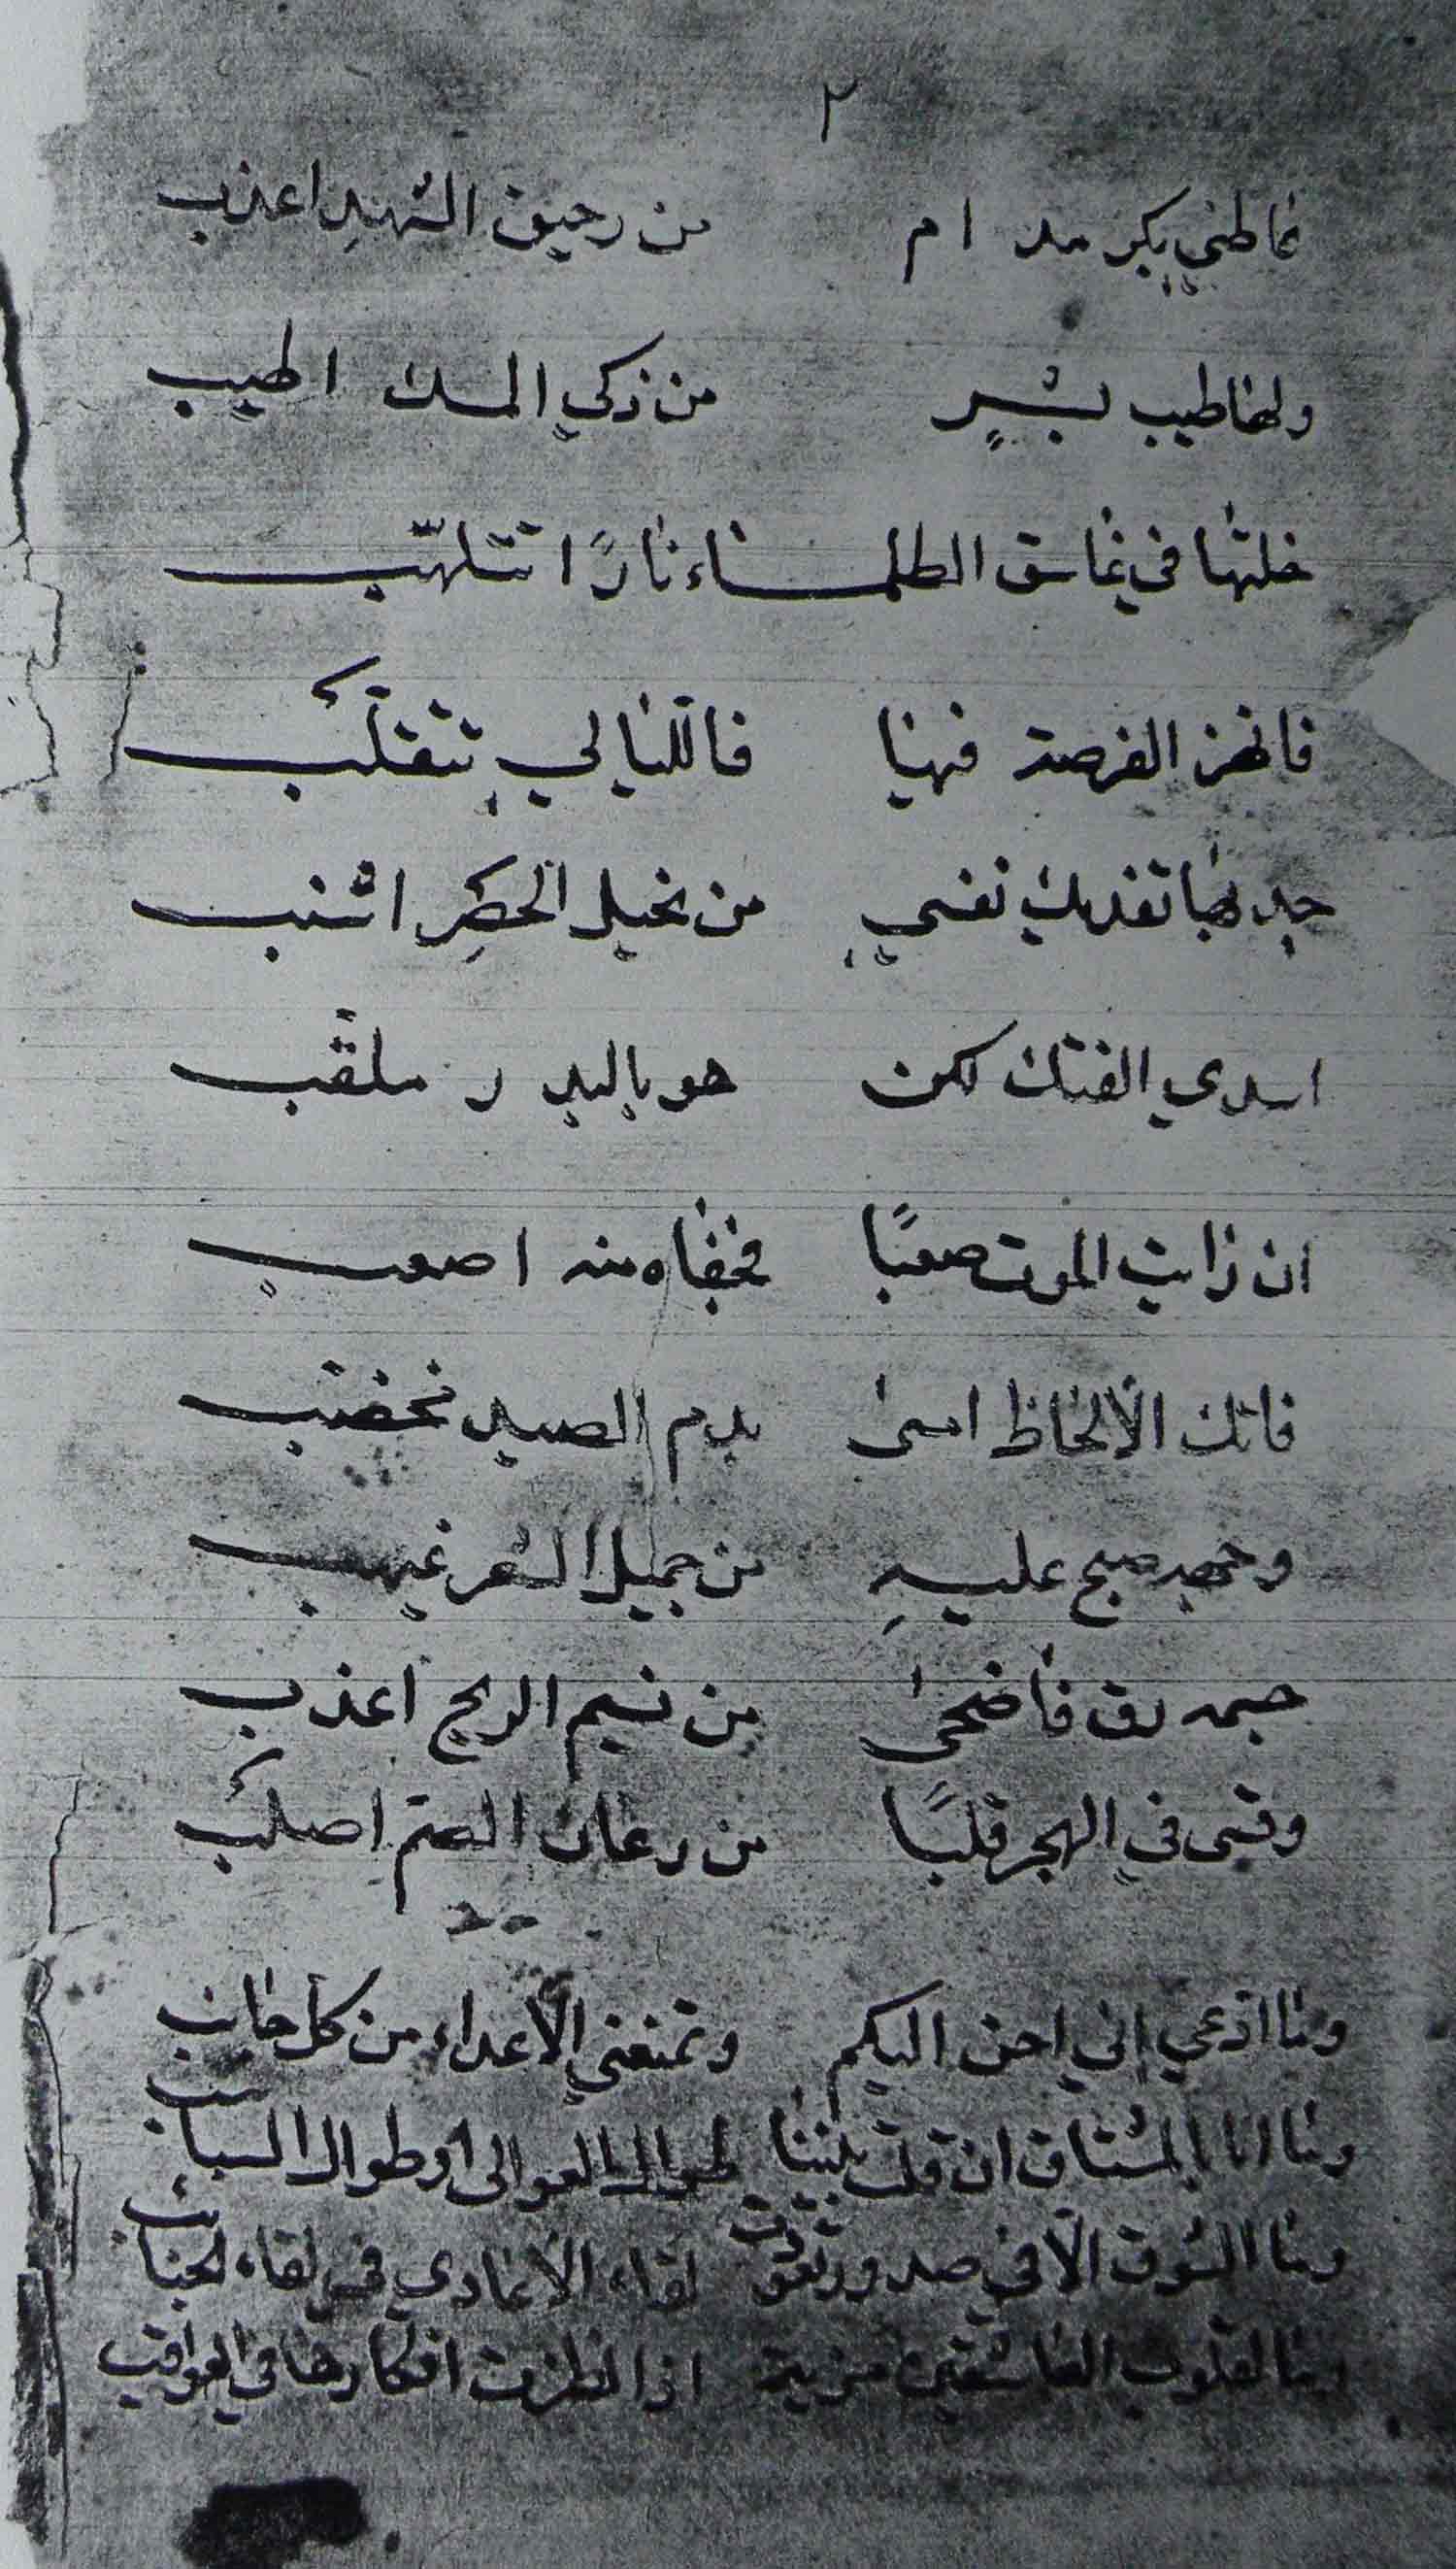 ٢
عاطني بكر مدام من رحيق الشهد اعذب
ولها طيب بشير من ذكي المسك اطيب
خلتها في غاسق الظلماء نارًا تتلهّب
فانهز الفرصة فهيا فاللّيالي تتقلّب
جد بها تفديك نفسي من نحيل الخصرِ اشنب
اسدي الفتك لكن هو بالبدر ملقّب
ان رايت الموت صعبًا فجفاه منه اصعب
فاتك الألحاظ امسى بدم الصيد مخضب
وجهه صبح عليهِ من جميل الشعر غيهب
جسمه رق فأضحى من نسيم الريح أعذب
وقسى في الهجر قلبًا من رعان الصم اصلب
وما ادعي اني احن اليكم وتمنعني الأعداء من كل جانب
وما انا بالمشتاق ان قلت بيننا طوال العوالي او طوال السباسب
وما الشوق الّا في صدور تعودت لقاء الأعادي في لقاء الحبائب
وما لقلوب العاشقين مزية اذا نظرت افكارها في العواقب